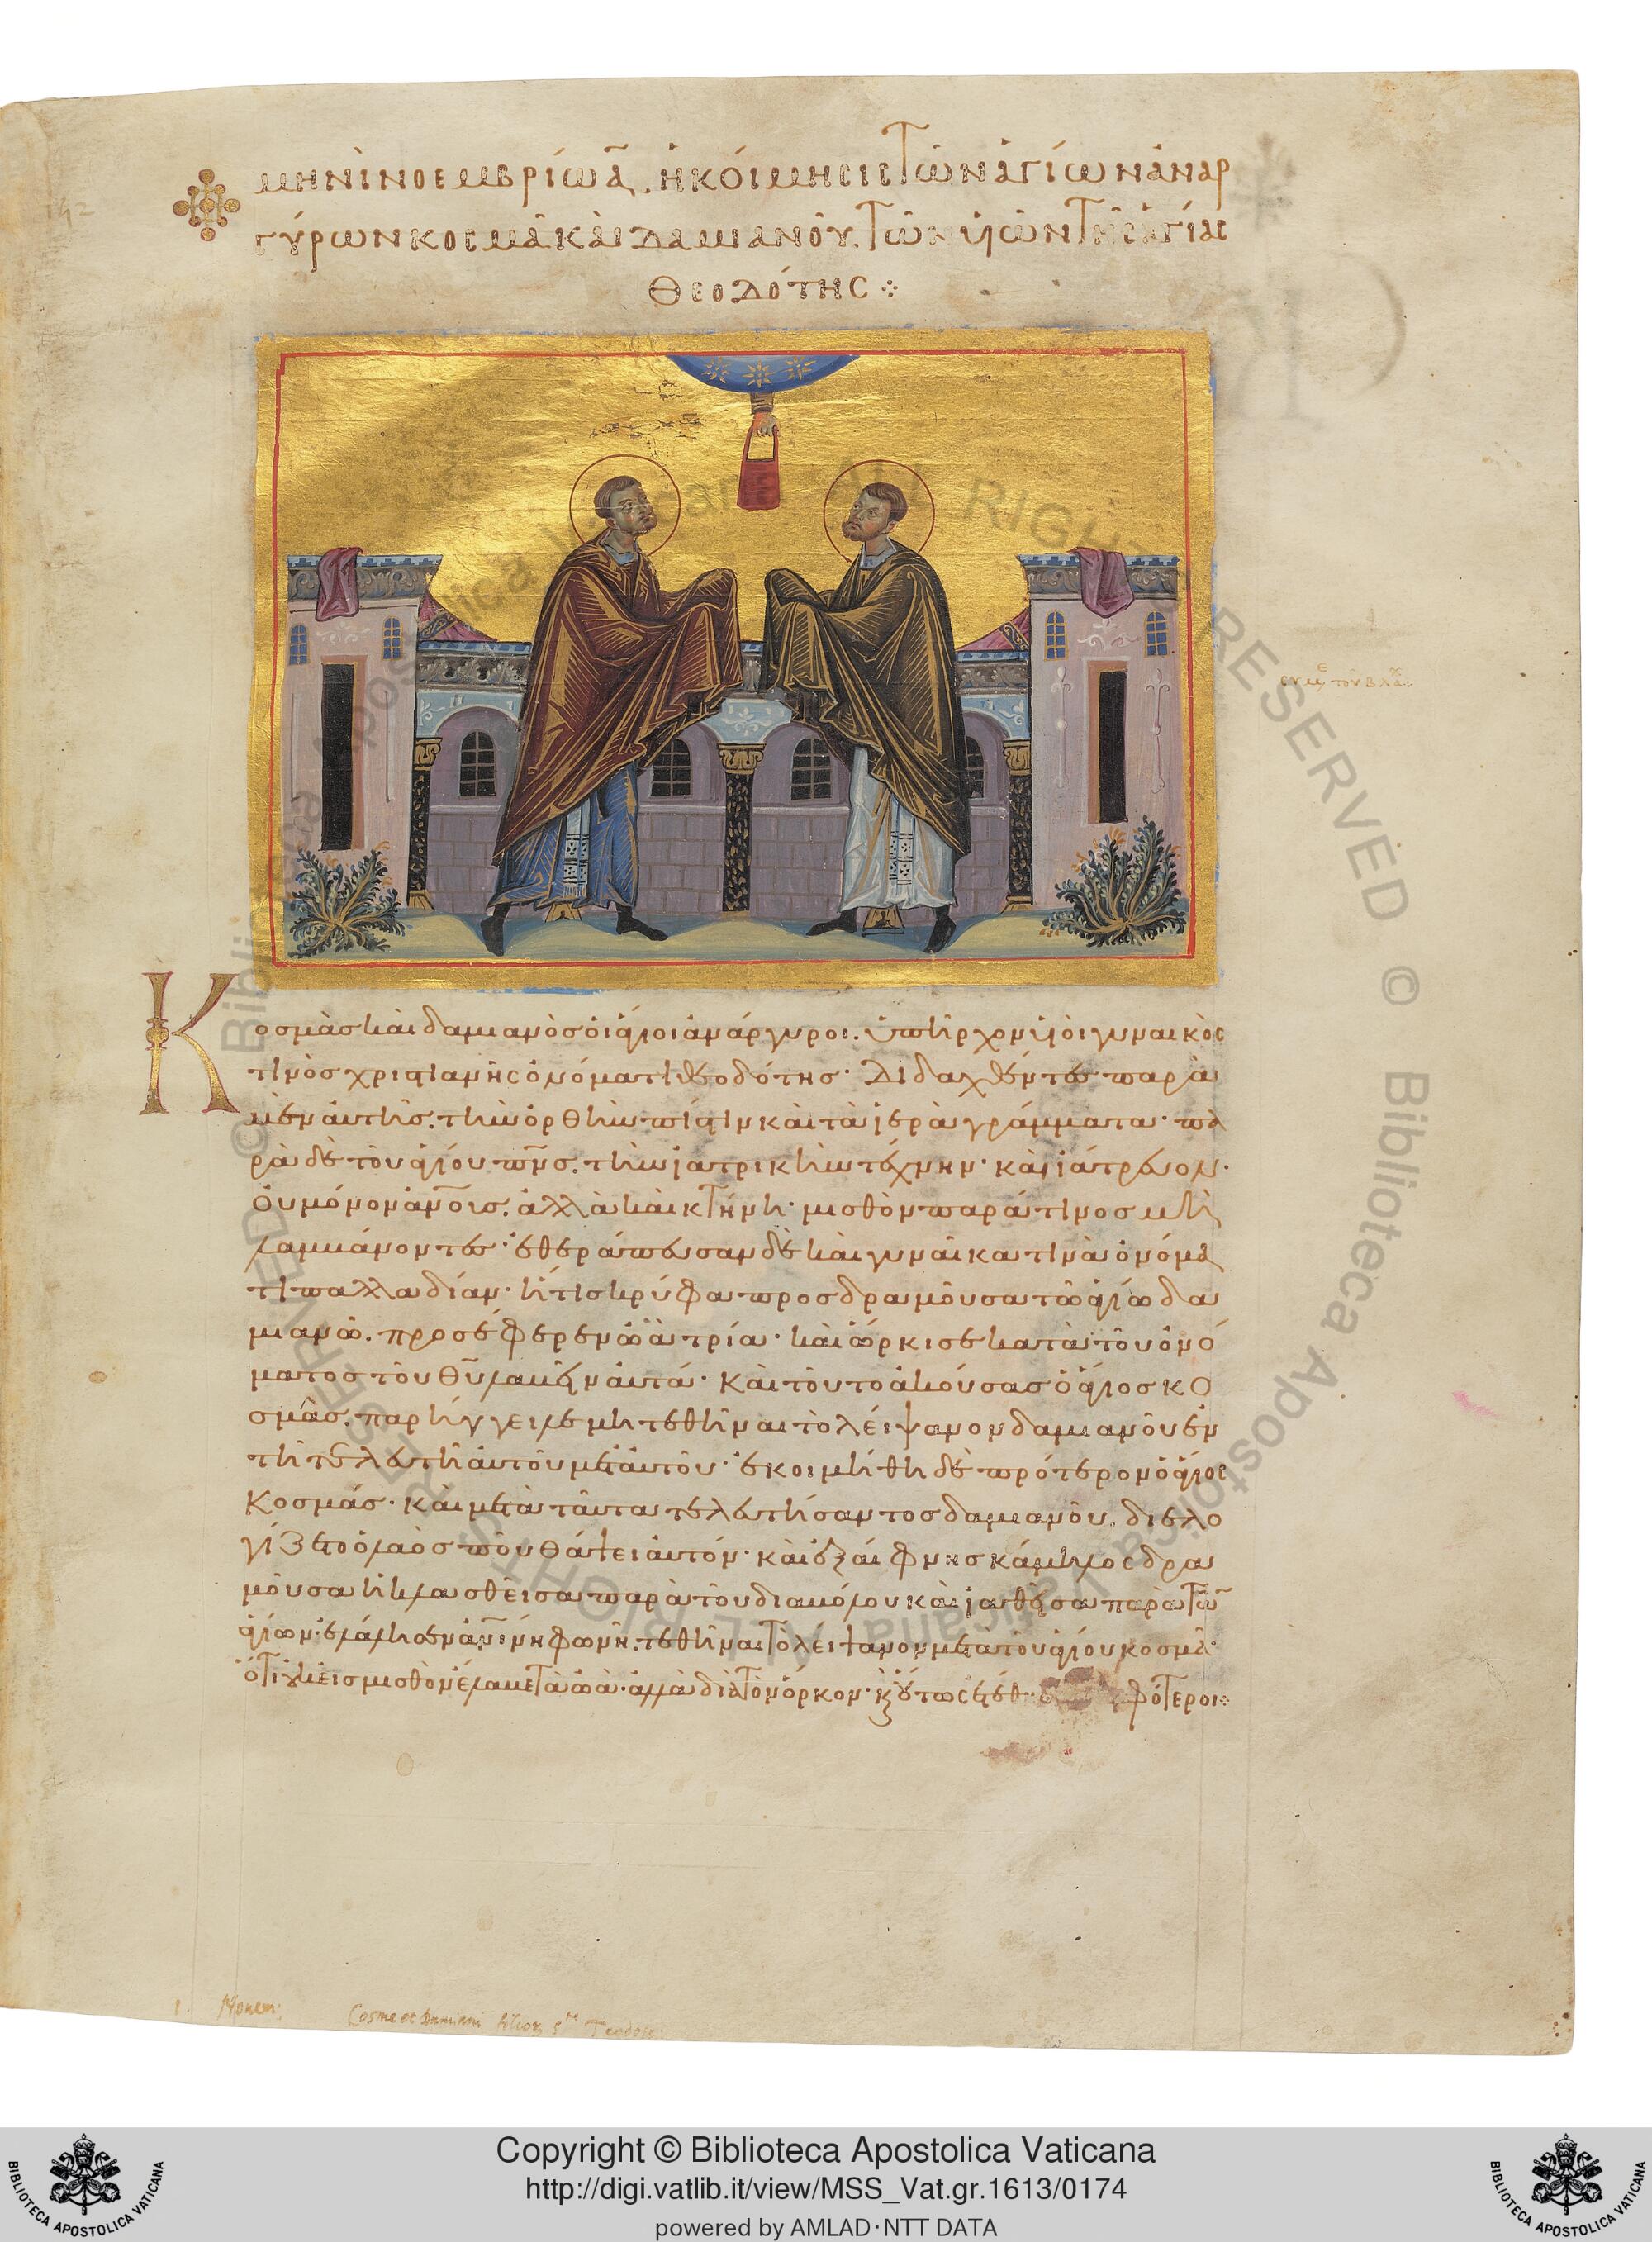 μηνὶ νοεμβρίω ᾱ. ἡ κοίμησις τῶν ἁγίων ἀναρ
γύρων κοσμᾶ καὶ δαμιανοῦ. τῶν υἱῶν τῆς ἁγίας
θεοδότης
ευκς τοῦ βλαχ
Κοσμὰς καὶ δαμιανὸς οἱ ἅγιοι ἀνάργυροι. ὑπῆρχον υἱοὶ γυναικὸς
τινὸς χριστιανῆς ὀνόματι θεοδότης· διδαχθέντες παρὰ
μὲν αὐτῆς. τὴν ὀρθὴν πίστιν καὶ τὰ ἱερὰ γράμματα· πα
ρὰ δὲ τοῦ ἁγίου πνς. τὴν ἰατρικὴν τέχνην· καὶ ἰάτρευον.
οὐ μόνον ἀνοις. ἀλλὰ καὶ κτήνη· μισθὸν παρά τινος μὴ
λαμβάνοντες· ἐθεράπευσαν δὲ καὶ γυναῖκα τινὰ ὀνόμα
τι παλλαδίαν· ἥτις κρύφα προσδραμοῦσα τῶ ἁγίω δα
μιανῶ. προσέφερεν ὠὰ τρία· καὶ ὥρκισε κατὰ τοῦ ὀνό
ματος τοῦ θυ λαβεῖν αὐτά· Καὶ τοῦτο ἀκούσας ὁ ἅγιος κο
σμᾶς. παρήγγειλε μὴ τεθῆναι τὸ λείψανον δαμιανοῦ ἐν
τῆ τελευτῆ αὐτοῦ μετ αὐτοῦ· ἐκοιμήθη δὲ πρότερον ὁ ἅγιος
Κοσμάς· καὶ μετὰ ταῦτα τελευτήσαντος δαμιανοῦ. διελο
γίζετο ὁ λαὸς ποῦ θάψει αὐτόν· καὶ ἐξαίφνης κάμηλος δρα
μοῦσα ἡ κλασθεῖσα παρὰ τοῦ διαβόλου καὶ ἰαθεῖσα παρὰ τῶν
ἁγίων· ἐλάλησεν ἀνίνη φωνῆ. τεθῆναι τὸ λείψανον μετὰ τοῦ ἁγίου κοσμᾶ·
ὅτι οὐκ εἰς μισθὸν ἔλαβε τὰ ὠὰ· ἀλλὰ διὰ τὸν ὅρκον· καὶ οὕτως ἐτέθησαν φότεροι
1. Novem:
Cosme et Damiani filior. S.te Teodote
Copyright © Biblioteca Apostolica Vaticana
http://digi.vatlib.it/view/MSS_Vat.gr.1613/0174
powered by AMLAD·NTT DATA
BIBLIOTECA APOSTOLICA VATICANA
BIBLIOTECA APOSTOLICA VATICANA
© Biblioteca Apostolica Vaticana ALL RIGHTS RESERVED © Biblioteca Apostolica Vaticana ALL RIGHTS RESERVED